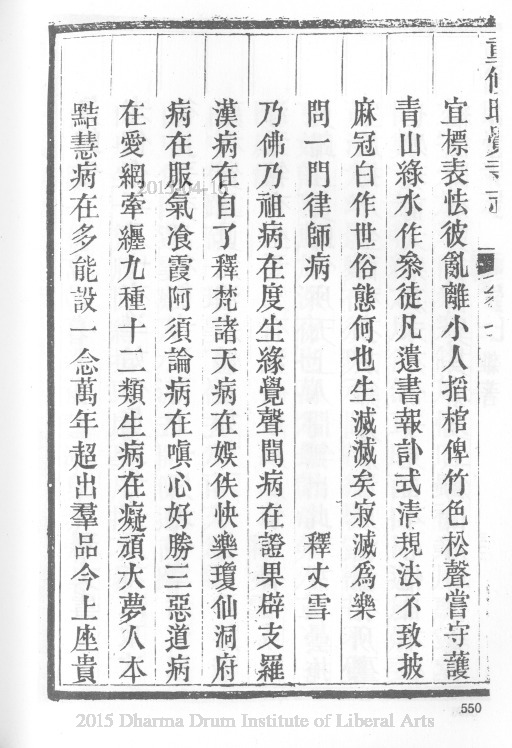 重修昭覺寺志 卷七
宜標表怯彼亂離小人搯棺俾竹色松聲嘗守護
青山綠水作叅徒凡遺書報訃式清規法不致披
麻冠白作世俗態何也生滅滅矣寂滅為樂
問一門律師病 釋丈雪
乃佛乃祖病在度生緣覺聲聞病在證果辟支羅
漢病在自了釋梵諸天病在娛佚快樂瓊仙洞府
病在服氣飡霞阿須論病在嗔心好勝三惡道病
在愛網牽纏九種十二類生病在癡頑大夢人本
黠慧病在多能設一念萬年超出羣品今上座貴
550
2015 Dharma Drum Institute of Liberal Arts